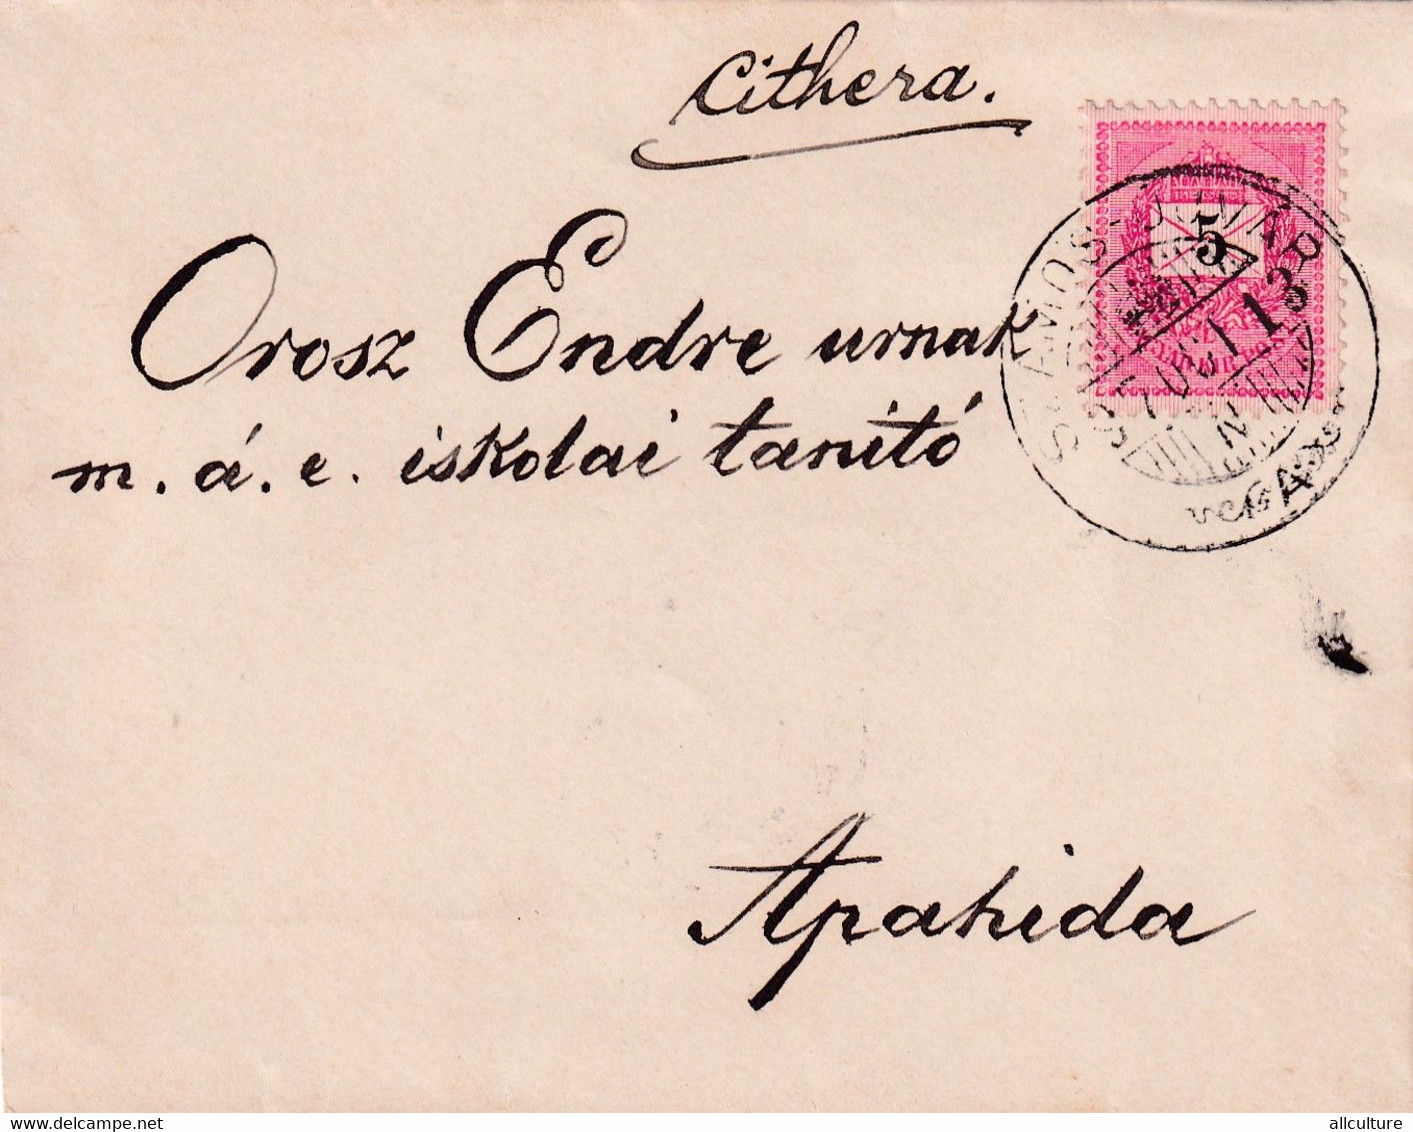 Cithera.
5
SZAMOS-UJVÁR
13
Orosz Endre urnak
m. á. e. iskolai tanító
Apahida
www.delcampe.net
allculture